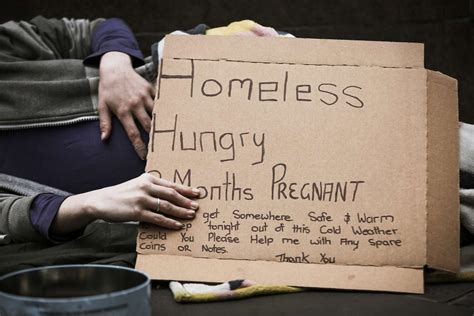 Homeless
Hungry
Months PREGNANT
get Somewhere Safe & Warm
tonight out of this Cold Weather.
Could You Please Help me with Any Spare
Coins OR Notes.
Thank You